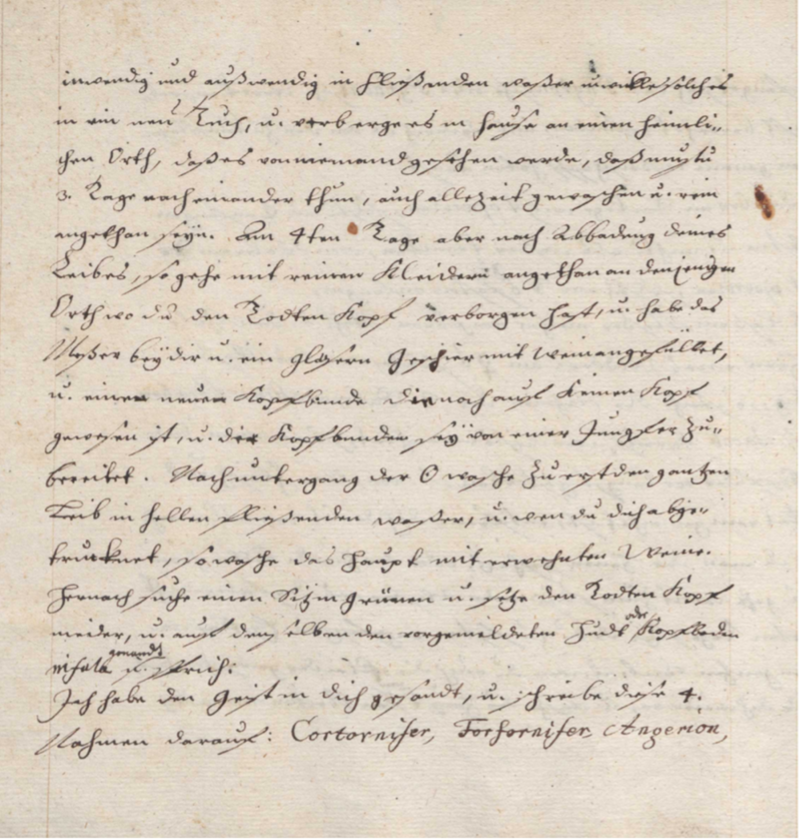 inwendig und außwendig in fließenden waßer u. wickle solches
in ein neu Tuch, u. verberge es in Hause an einen heimli-
chen Orth, daß es von niemand gesehen werde, daß mustu
3. Tage nach einander thun, auch allezeit gewaschen u. rein
angethan seyn. Am 4ten Tage aber nach Abbadung deines
Leibes, so gehe mit reinen Kleidern angethan an den jenigen
Orth wo du den Todten Kopf verborgen hast, u. habe das
Meßer bey dir u. ein gläsern Geschier mit Wein angefüllet,
u. einen neuen Kopfbinde die noch auf keinen Kopf
gewesen ist, u. die Kopfbinden sey von einer Jungfer zu-
bereitet. Nach untergang der ☉ wasche zu erst den gantzen
Leib in hellen fließenden waßer, u. wen du dich abge-
trucknet, so wasche das Haupt mit erwehnten Weine.
Hernach suche einen Sitz im grünen u. setze den Todten Kopf
nieder, u. auf demselben den vorgemeldeten Hudt oder Kopfbinden
infula genandt u. sprich:
Ich habe den Geist in dich gesandt, u. schreibe diese 4.
Nahmen darauf: Cortornifer, Forfornifer, Angerion,